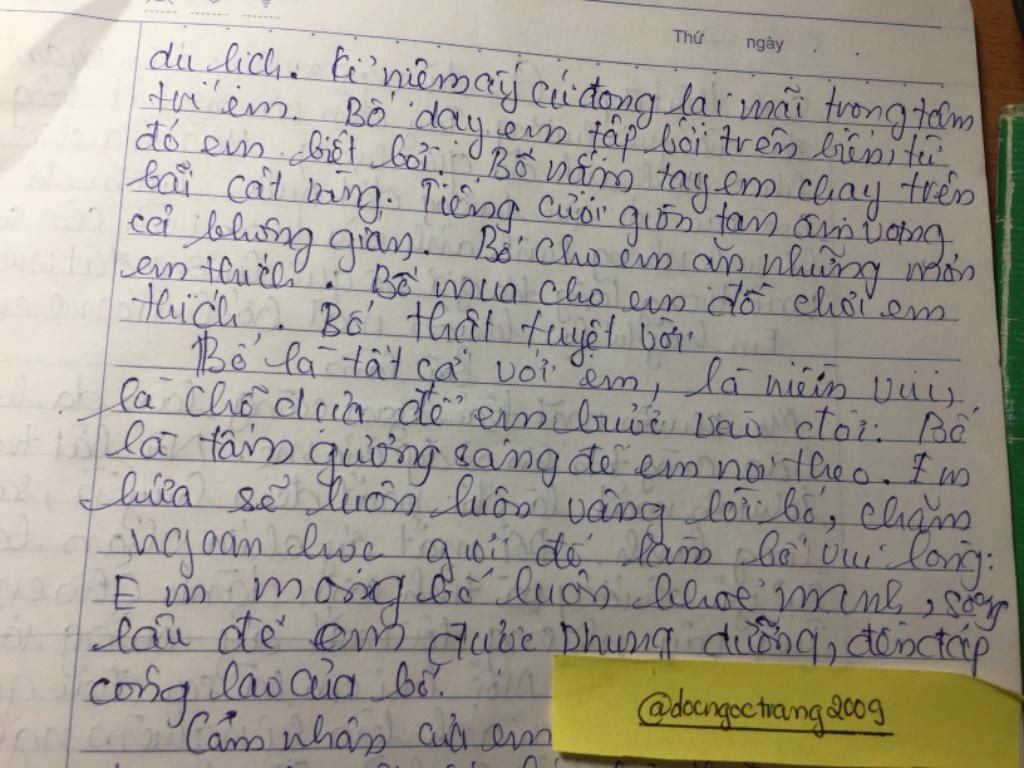 Thứ ngày
du lich. Kỉ niệm ấy cứ đọng lại mãi trong tâm
trí em. Bố dạy em tập bơi trên biển, từ
đó em biết bơi. Bố nắm tay em chạy trên
bãi cát vàng. Tiếng cười giòn tan âm vang
cả không gian. Bố cho em ăn những món
em thích. Bố mua cho em đồ chơi em
thích. Bố thật tuyệt vời.
Bố là tất cả với em, là niềm vui,
là chỗ dựa để em bước vào đời. Bố
là tấm gương sáng để em noi theo. Em
hứa sẽ luôn luôn vâng lời bố, chăm
ngoan học giỏi để làm bố vui lòng.
Em mong bố luôn khoẻ mạnh, sống
lâu để em được phụng dưỡng, đền đáp
công lao của bố.
Cảm nhận của em
@docngoctrang2009